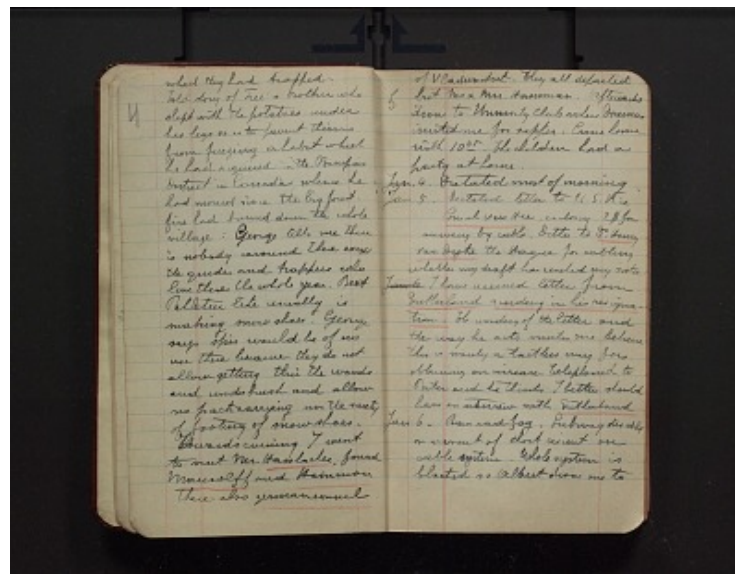 what they had trapped.
Told story of Tree's brother who
slept with the potatoes under
his legs as to prevent them
from freezing a habit which
he had acquired in the
District in Canada where he
had moved since the big forest
fire had burned down the whole
village. George tells me there
is nobody around there except
the guides and trappers who
live there the whole year. Best
usually is
making snow shoes. George
says skis would be of no
use there because they do not
allow getting thru the woods
and underbrush and allow
no pack carrying nor the
of footing of snow shoes.
Towards evening I went
to meet Mr. Hasslacher, found
and
there also german consul
5
of Vladivostock. They all departed
but Mr & Mrs. Afterwards
drove to University Club where
invited me for supper. Came home
until 10 45. The children had a
party at home.
Jan. 4. Dictated most of morning.
Jan 5. Dictated letter to U.S.
by cable. Letter to
van the Hague for cabling
whether my draft has reached my note.
I have received letter from
Sutherland sending in his resigna-
tion. The wording of the letter and
the way he acts makes me believe
this is merely a tactless way for
obtaining an increase. Telephoned to
and he thinks I better should
have an interview with Sutherland
Jan 6. Rain and fog. Subway disable
on account of short circuit on
cable system. Whole system is
blocked so Albert drove me to